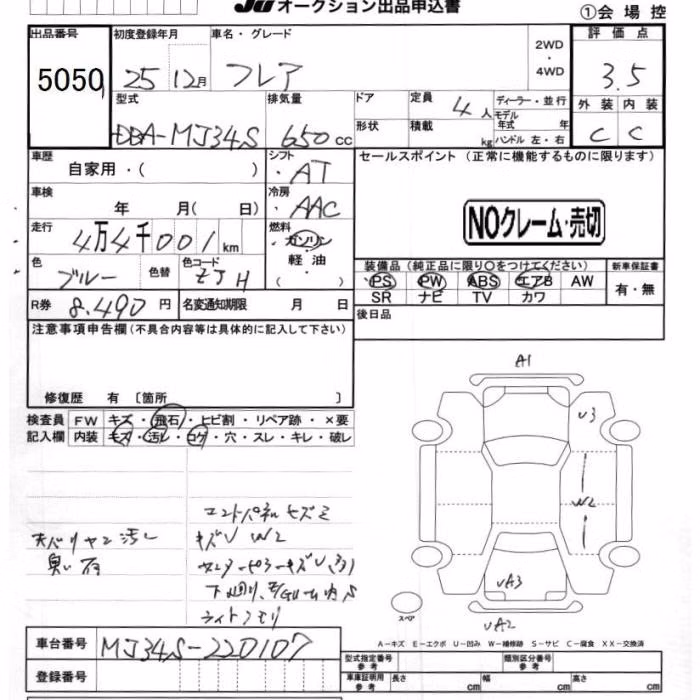 JU オークション出品申込書
①会場控
出品番号 5050
初度登録年月 25 12月
車名・グレード フレア
2WD・4WD
評価点 3.5
外装 C 内装 C
型式 DBA-MJ34S
排気量 650cc
ドア 形状
定員 4人
積載 kg
ディーラー・並行
モデル年式 年
ハンドル 左・右
車歴 自家用・( )
シフト ・AT
セールスポイント (正常に機能するものに限ります)
車検 年 月( 日)
冷房 ・AAC
NOクレーム・売切
走行 4万4千001km
燃料 ・ガソリン 軽油・( )
色 ブルー 色替
色コード ZJH
装備品(純正品に限り○をつけてください)
PS PW ABS エアB AW
SR ナビ TV カワ
新車保証書 有・無
R券 8.490円
名変通知期限 月 日
後日品
注意事項申告欄(不具合内容等は具体的に記入して下さい)
修復歴 有 〔箇所 〕
検査員記入欄
FW キズ・飛石・ヒビ割・リペア跡・×要
内装 キズ・汚レ・コゲ・穴・スレ・キレ・破レ
A1
U3
W2
UA3
UA2
スペア
コアトパネル ヒズミ
キズU W2
天バリヤニ汚レ
臭い有
ライトクモリ
A-キズ E-エクボ U-凹み W-補修跡 S-サビ C-腐食 XX-交換済
車台番号 MJ34S-220107
登録番号
型式指定番号 参考
類別区分番号 参考
車庫証明用 参考 長さ cm 幅 cm 高さ cm